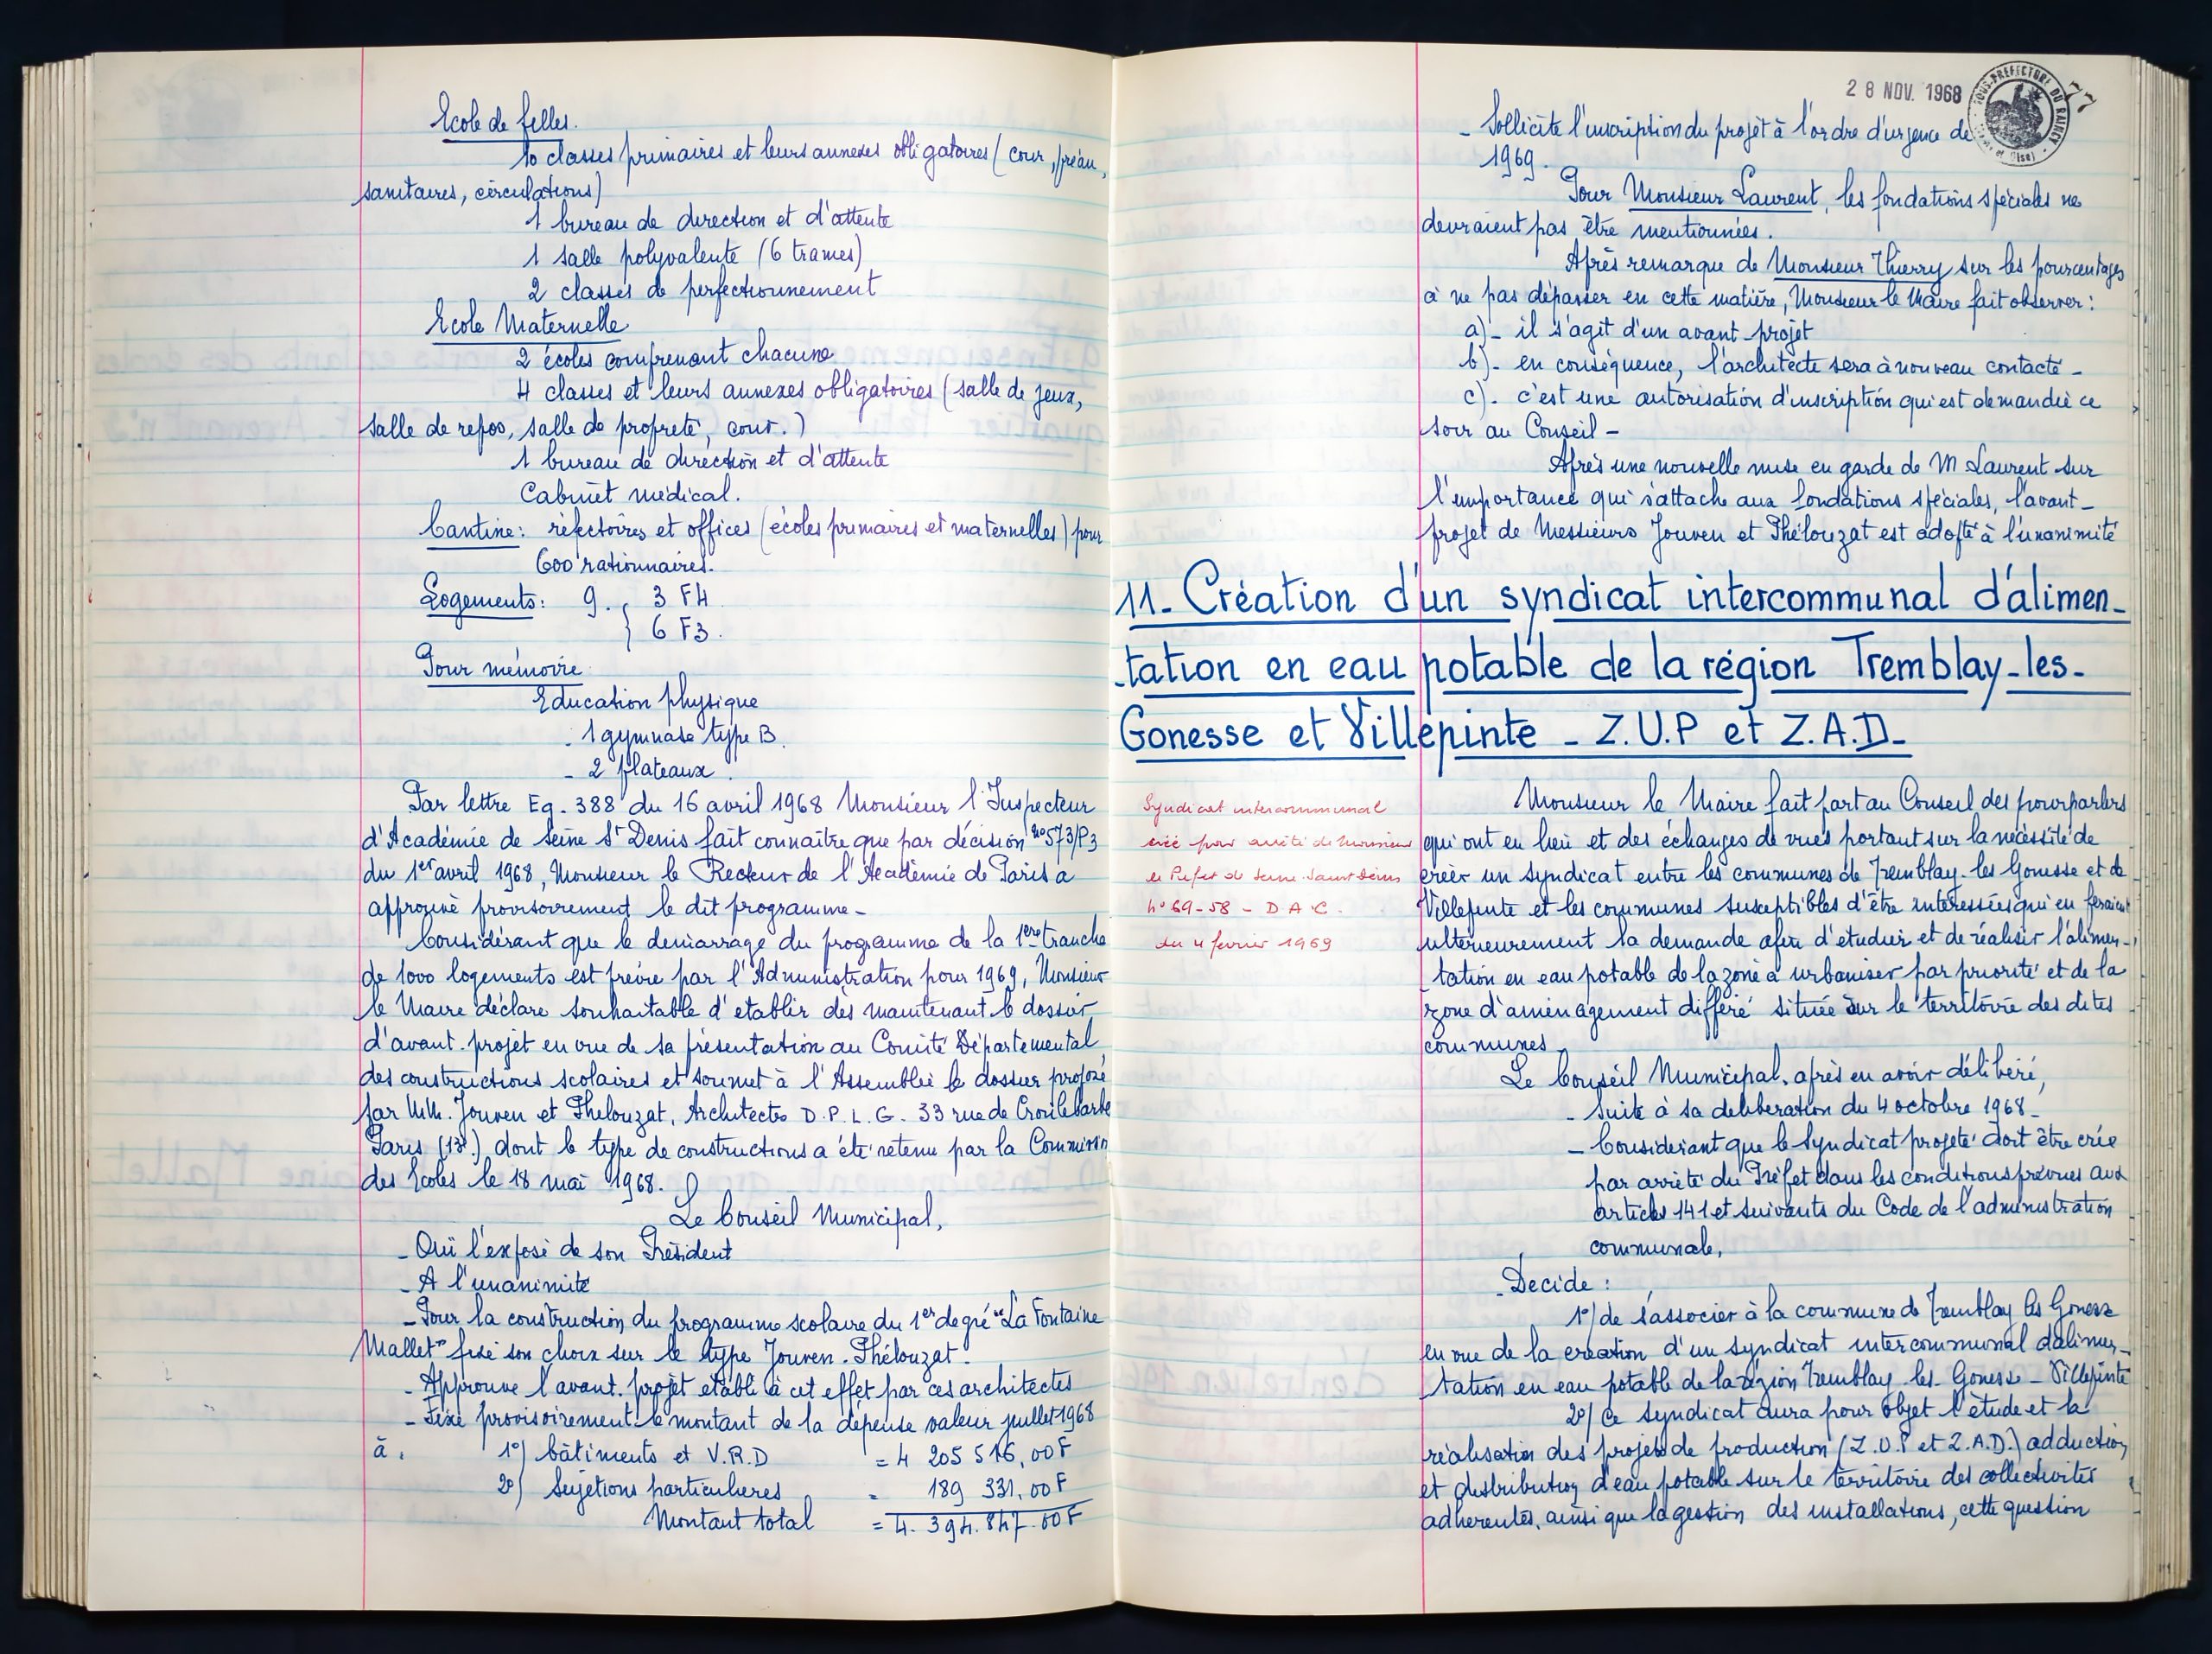 Ecole de filles.
10 classes primaires et leurs annexes obligatoires (cour, préau,
sanitaires, circulations)
1 bureau de direction et d'attente
1 salle polyvalente (6 trames)
2 classes de perfectionnement
Ecole Maternelle
2 écoles comprenant chacune
4 classes et leurs annexes obligatoires (salle de jeux,
salle de repos, salle de propreté, cour.)
1 bureau de direction et d'attente
Cabinet médical.
Cantine: réfectoires et offices (écoles primaires et maternelles) pour
600 rationnaires.
Logements: 9. { 3 F4
6 F3.
Pour mémoire
Education physique
- 1 gymnase type B.
- 2 plateaux.
Par lettre Eg. 388 du 16 avril 1968 Monsieur l'Inspecteur
d'Académie de Seine St Denis fait connaître que par décision n° 573/P3
du 1er avril 1968, Monsieur le Recteur de l'Académie de Paris a
approuvé provisoirement le dit programme -
Considérant que le démarrage du programme de la 1ère tranche
de 1000 logements est prévu par l'Administration pour 1969, Monsieur
le Maire déclare souhaitable d'établir dès maintenant le dossier
d'avant-projet en vue de sa présentation au Comité Départemental
des constructions scolaires et soumet à l'Assemblée le dossier proposé
par MM. Jouven et Phélouzat, Architectes D.P.L.G. 33 rue de Croulebarbe
Paris (13e) dont le type de constructions a été retenu par la Commission
des Ecoles le 18 mai 1968.
Le Conseil Municipal,
- Ouï l'exposé de son Président
- A l'unanimité
- Pour la construction du programme scolaire du 1er degré "La Fontaine
Mallet" fixe son choix sur le type Jouven-Phélouzat.
- Approuve l'avant-projet établi à cet effet par ces architectes
- Fixe provisoirement le montant de la dépense valeur juillet 1968
à : 1°) bâtiments et V.R.D = 4 205 516,00 F
2°) Sujétions particulières = 189 331,00 F
Montant total = 4.394.847.00 F
28 NOV. 1968
SOUS-PREFECTURE DU RAINCY
77
- Sollicite l'inscription du projet à l'ordre d'urgence de
1969.
Pour Monsieur Laurent, les fondations spéciales ne
devraient pas être mentionnées.
Après remarque de Monsieur Thierry sur les pourcentages
à ne pas dépasser en cette matière, Monsieur le Maire fait observer:
a)- il s'agit d'un avant projet
b)- en conséquence, l'architecte sera à nouveau contacté -
c)- c'est une autorisation d'inscription qui est demandée ce
soir au Conseil -
Après une nouvelle mise en garde de M Laurent sur
l'importance qui s'attache aux fondations spéciales, l'avant-
projet de Messieurs Jouven et Phélouzat est adopté à l'unanimité
11- Création d'un syndicat intercommunal d'alimen-
-tation en eau potable de la région Tremblay-les-
Gonesse et Villepinte - Z.U.P et Z.A.D-
Syndicat intercommunal
créé par arrêté de Monsieur
le Préfet de Seine Saint Denis
n° 69-58 - D A C.
du 4 février 1969
Monsieur le Maire fait part au Conseil des pourparlers
qui ont eu lieu et des échanges de vues portant sur la nécessité de
créer un syndicat entre les communes de Tremblay-les Gonesse et de
Villepinte et les communes susceptibles d'être intéressées qui en feraient
ultérieurement la demande afin d'étudier et de réaliser l'alimen-
-tation en eau potable de la zone à urbaniser par priorité et de la
zone d'aménagement différé située sur le territoire des dites
communes
Le Conseil Municipal, après en avoir délibéré,
- Suite à sa délibération du 4 octobre 1968 -
- Considérant que le Syndicat projeté doit être crée
par arrêté du Préfet dans les conditions prévues aux
articles 141 et suivants du Code de l'administration
communale,
- Décide :
1°/ de s'associer à la commune de Tremblay les Gonesse
en vue de la création d'un syndicat intercommunal d'alimen-
-tation en eau potable de la région Tremblay-les-Gonesse - Villepinte
2°/ Ce syndicat aura pour objet l'étude et la
réalisation des projets de production (Z.U.P et Z.A.D.) adduction,
et distribution d'eau potable sur le territoire des collectivités
adhérentes, ainsi que la gestion des installations, cette question